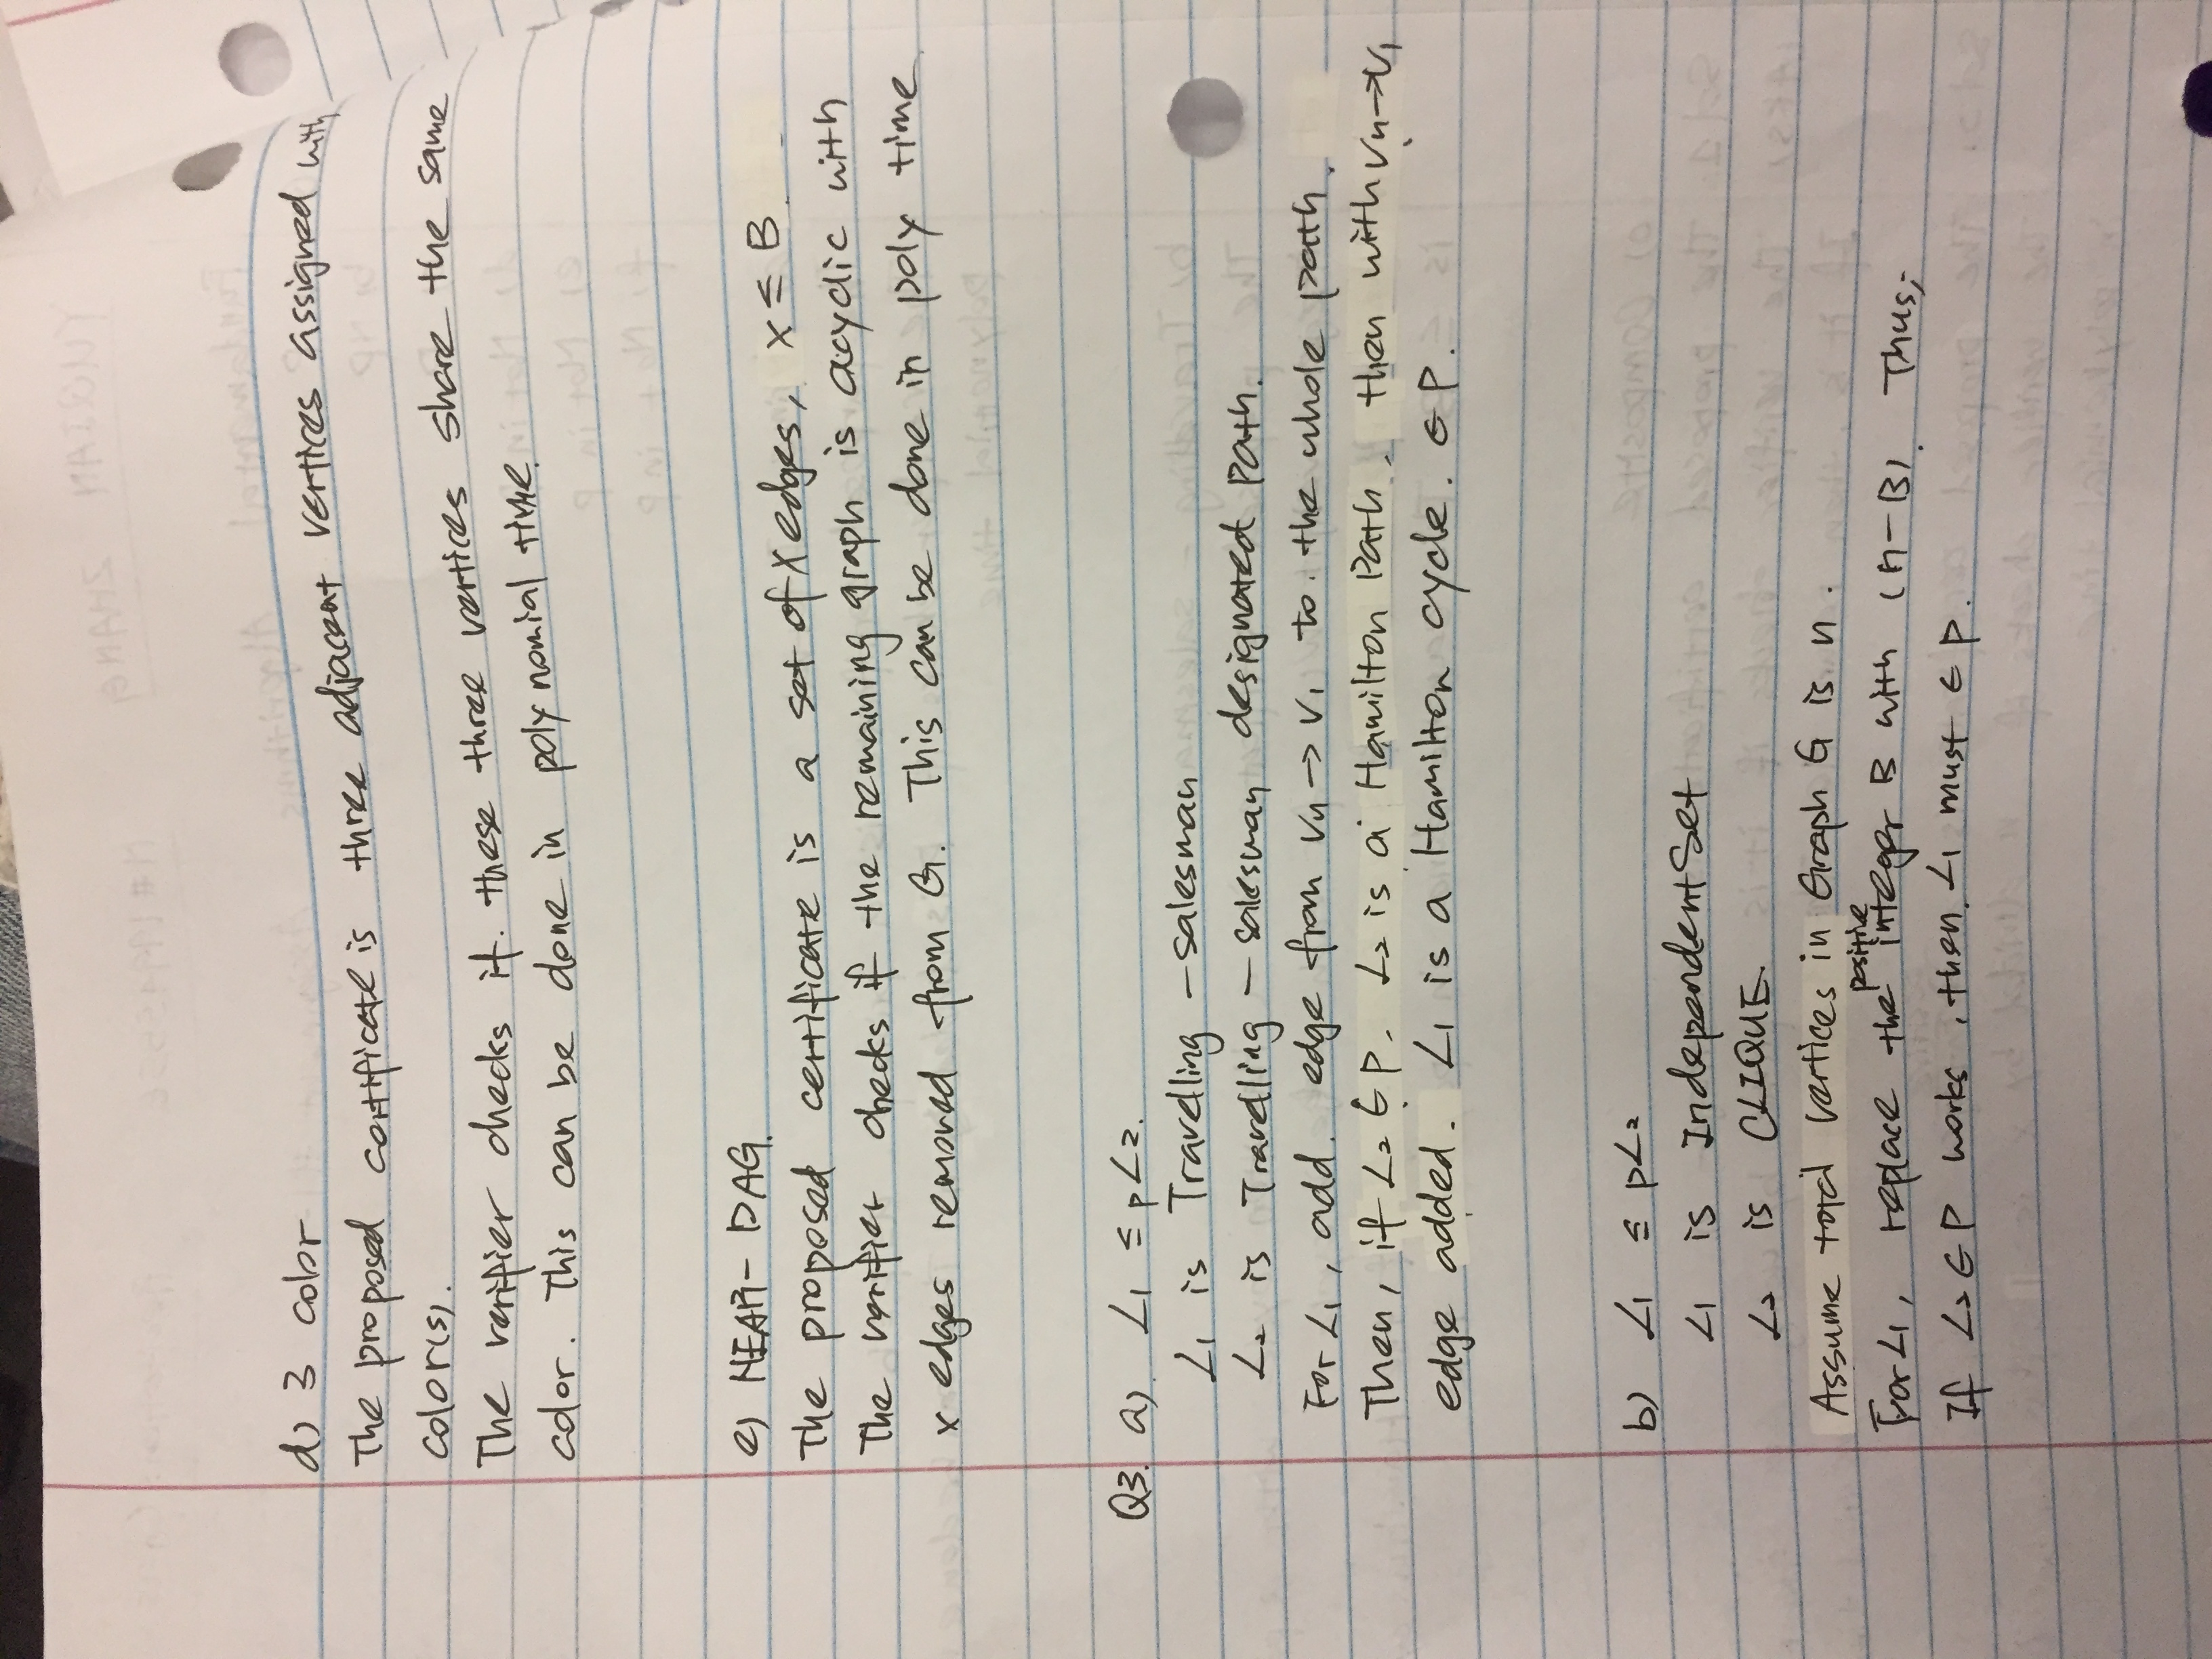 d) 3 color
The proposed certificate is three adjacent vertices assigned with
color(s).
The verifier checks if these three vertices share the same
color. This can be done in polynomial time.
e) NEAR-DAG.
The proposed certificate is a set of x edges, x ≤ B.
The verifier checks if the remaining graph is acyclic with
x edges removed from G. This can be done in poly time
Q3. a). L1 ≤ pL2.
L1 is Travelling - salesman
L2 is Travelling - salesman designated path.
For L1, add. edge from Vn → V1 to. the whole path.
Then, if L2 ∈ P. L2 is a Hamilton Path, then with Vn→V1
edge added. L1 is a Hamilton cycle. ∈ P.
b) L1 ≤ pL2
L1 is Independent Set
L2 is CLIQUE.
Assume total vertices in Graph G is n.
For L1, replace the positive integer B with (n-B). Thus,
If L2 ∈ P works, then L1 must ∈ P.